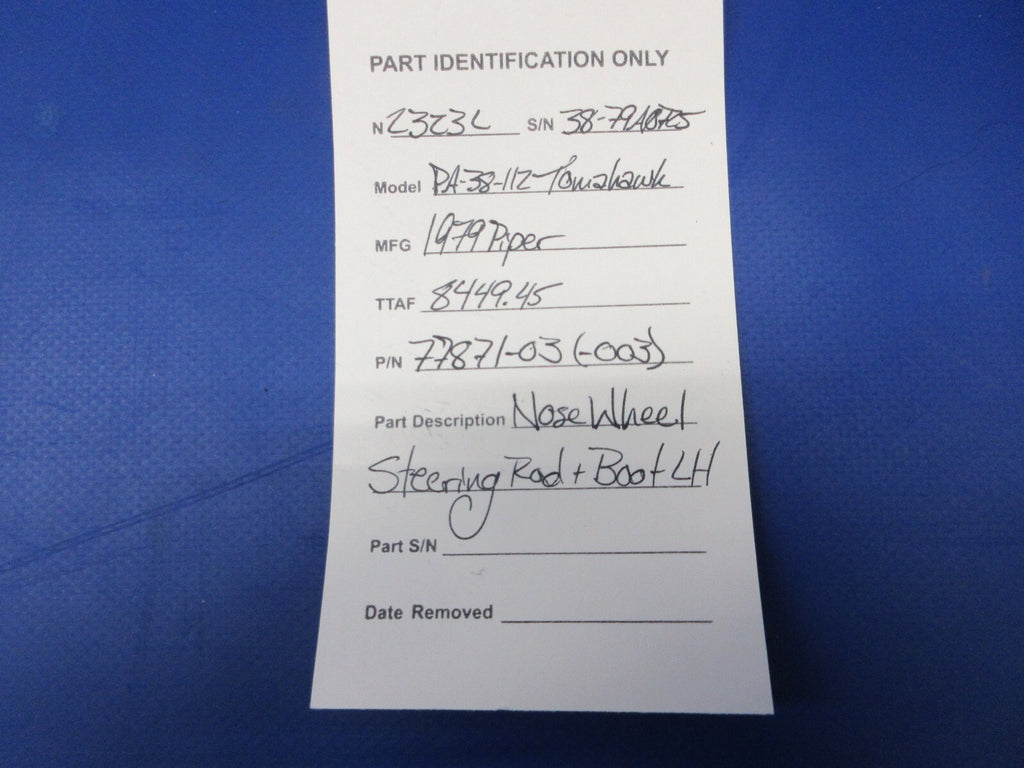 PART IDENTIFICATION ONLY
N 2323L S/N
Model PA-38-112 Tomahawk
MFG 1979 Piper
TTAF 8449.45
P/N 77871-03 (-003)
Part Description Nose Wheel
Steering Rod + Boot LH
Part S/N
Date Removed